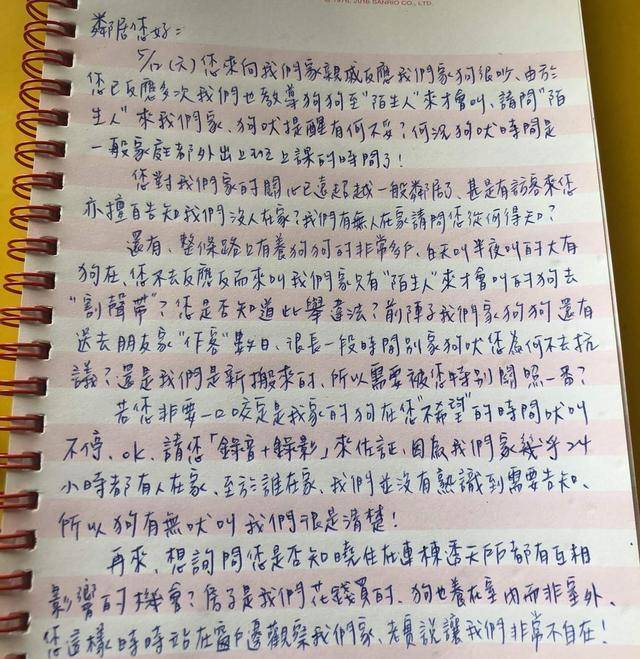 © 1976, 2016 SANRIO CO., LTD.
鄰居您好：
5/12（六）您來向我們家親戚反應我們家狗很吵，由於
您已反應多次我們也教導狗狗至“陌生人”來才會叫、請問“陌
生人”來我們家、狗吠提醒有何不妥？何況狗吠時間是
一般家庭都外出上班上課的時間了！
您對我們家的關心已遠超越一般鄰居了、甚是有訪客來您
亦擅自告知我們沒人在家？我們有無人在家請問您從何得知？
還有、整條路上有養狗狗的非常多戶、白天叫半夜叫的大有
狗在、您不去反應反而來叫我們家只有“陌生人”來才會叫的狗去
“割聲帶”？您是否知道此舉違法？前陣子我們家狗狗還有
送去朋友家“作客”數日、很長一段時間別家狗吠您為何不去抗
議？還是我們是新搬來的、所以需要被您特別關照一番？
若您非要一口咬定是我家的狗在您“不希望”的時間吠叫
不停、ok、請您「錄音+錄影」來佐証、因為我們家幾乎24
小時都有人在家、至於誰在家、我們並沒有熟識到需要告知、
所以狗有無吠叫我們很是清楚！
再來、想詢問您是否知曉住在連棟透天戶都有互相
影響的機會？房子是我們花錢買的、狗也養在室內而非室外、
您這樣時時站在窗戶邊觀察我們家、老實說讓我們非常不自在！